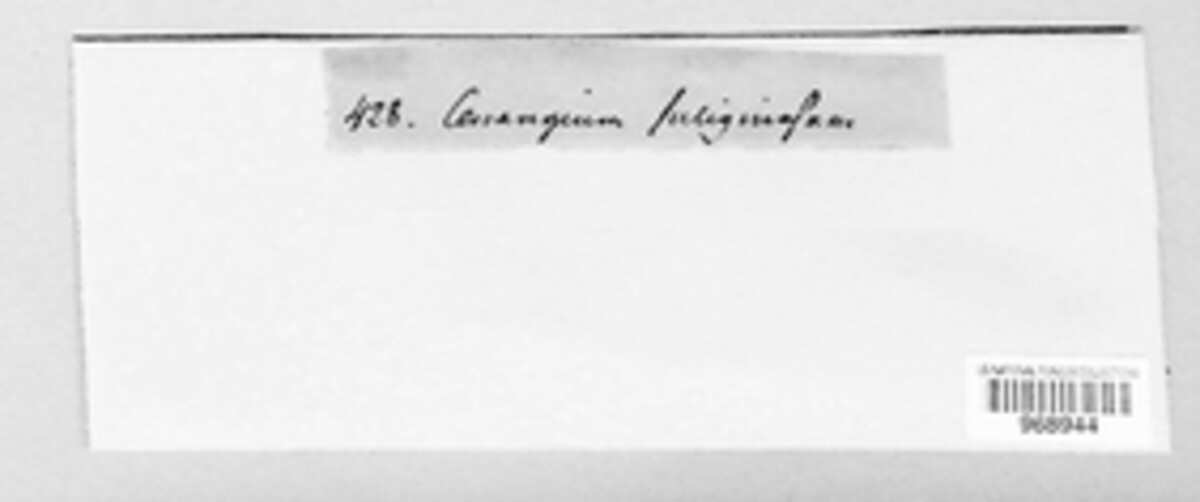 428. Cenangium fuliginosum
968944